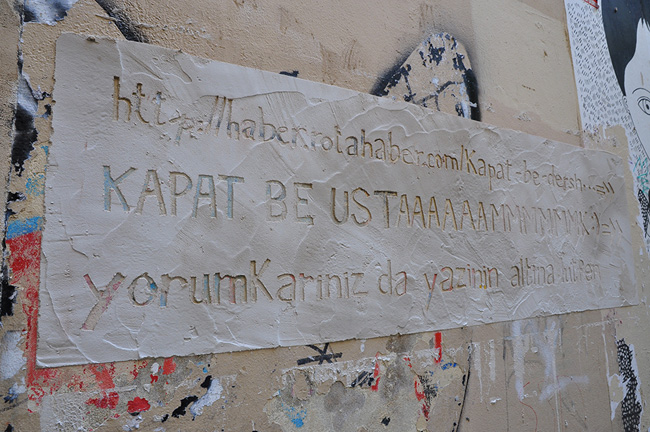 http://haber.rotahaber.com/Kapat-be-dersh...=))
KAPAT BE USTAAAAAAMMMMMMK:)=))
yorumKariniz da yazinin altina lutfen